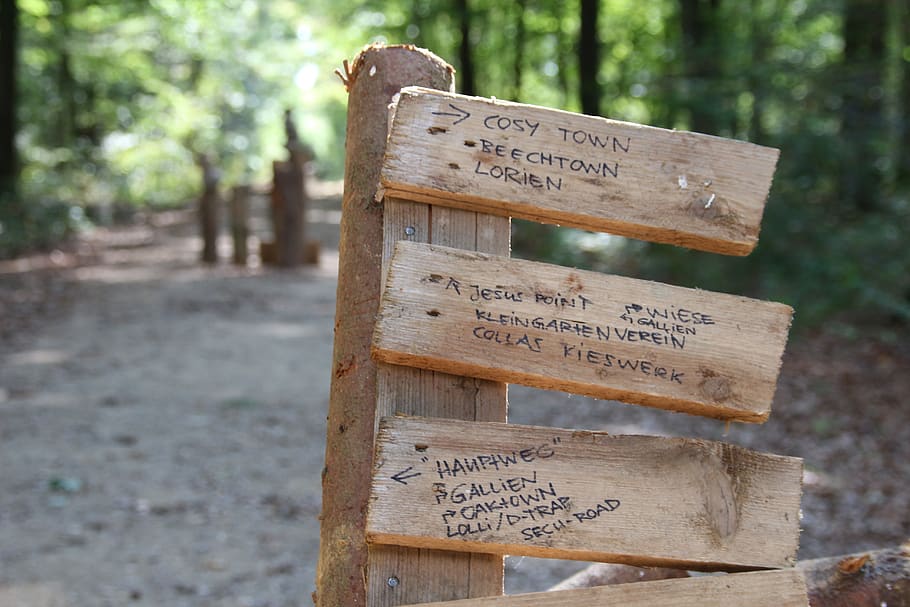 → COSY TOWN
BEECHTOWN
LORIEN
JESUS POINT
WIESE
GALLIEN
KLEINGARTENVEREIN
COLLAS KIESWERK
← "HAUPTWEG"
GALLIEN
OAKTOWN
LOLLI/D-TRAP
SECH-ROAD